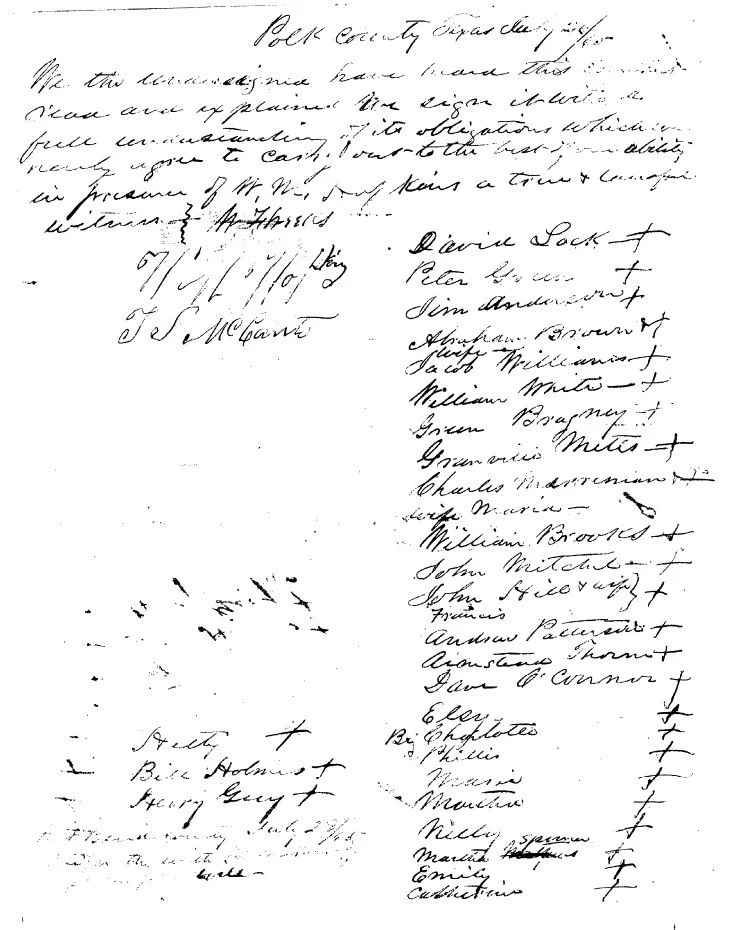 Polk County Texas July /65
We the undersigned have heard this
read and explained We sign it with a
full understanding of its obligations which we
agree to carry out to the best of our ability
in presence of W. W. of Kins a true & lawful
witness
T S McCants
David Lock +
Peter Green +
Jim Anderson +
Abraham Brown & +
wife
Jacob Williams +
William White +
Green Bragney +
Granville Metts +
Charles Merriman & +
wife Maria
William Brooks +
John Mitchel +
John Hill & wife } +
Francis
Andrew Patterson +
Armstead Thorn +
Dave O'Connor +
Elsy +
Big Charlotte +
Phillis +
Maria +
Martha +
Nelly +
Martha Spencer +
Emily +
Catherine +
Hetty +
Bill Holmes +
Henry Guy +
Bend County July /65